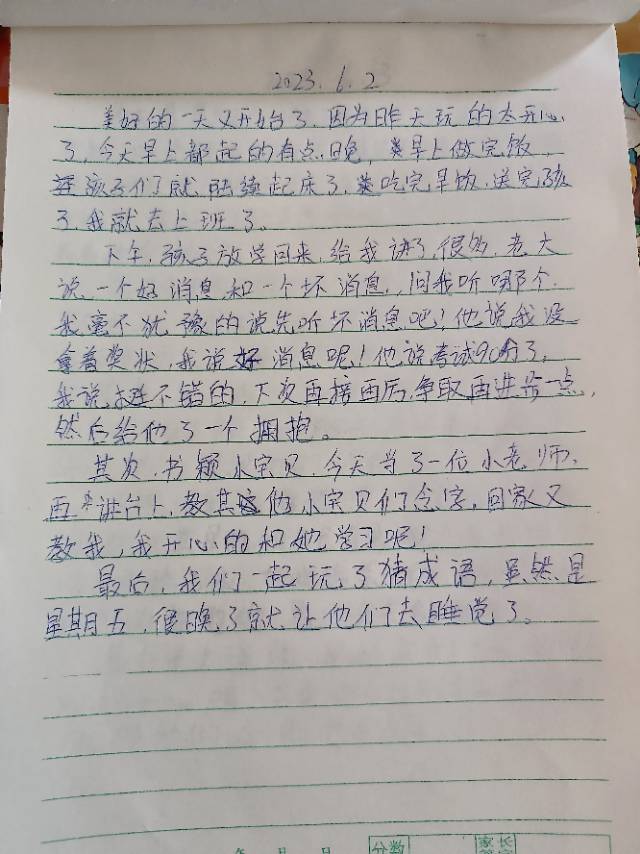 2023.6.2
美好的一天又开始了,因为昨天玩的太开心
了,今天早上都起的有点晚,早上做完饭
孩子们就陆续起床了,吃完早饭,送完孩
了,我就去上班了。
下午,孩子放学回来,给我讲了很多,老大
说一个好消息和一个坏消息,问我听哪个,
我毫不犹豫的说先听坏消息吧!他说我没
拿着奖状,我说好消息呢!他说考试90分了,
我说挺不错的,下次再接再厉,争取再进步一点,
然后给他了一个拥抱。
其次,书颖小宝贝,今天当了一位小老师,
再讲台上,教其他小宝贝们念字,回家又
教我,我开心的和她学习呢!
最后,我们一起玩了猪成语,虽然是
星期五,很晚了就让他们去睡觉了。
年 月 日
分数
家长